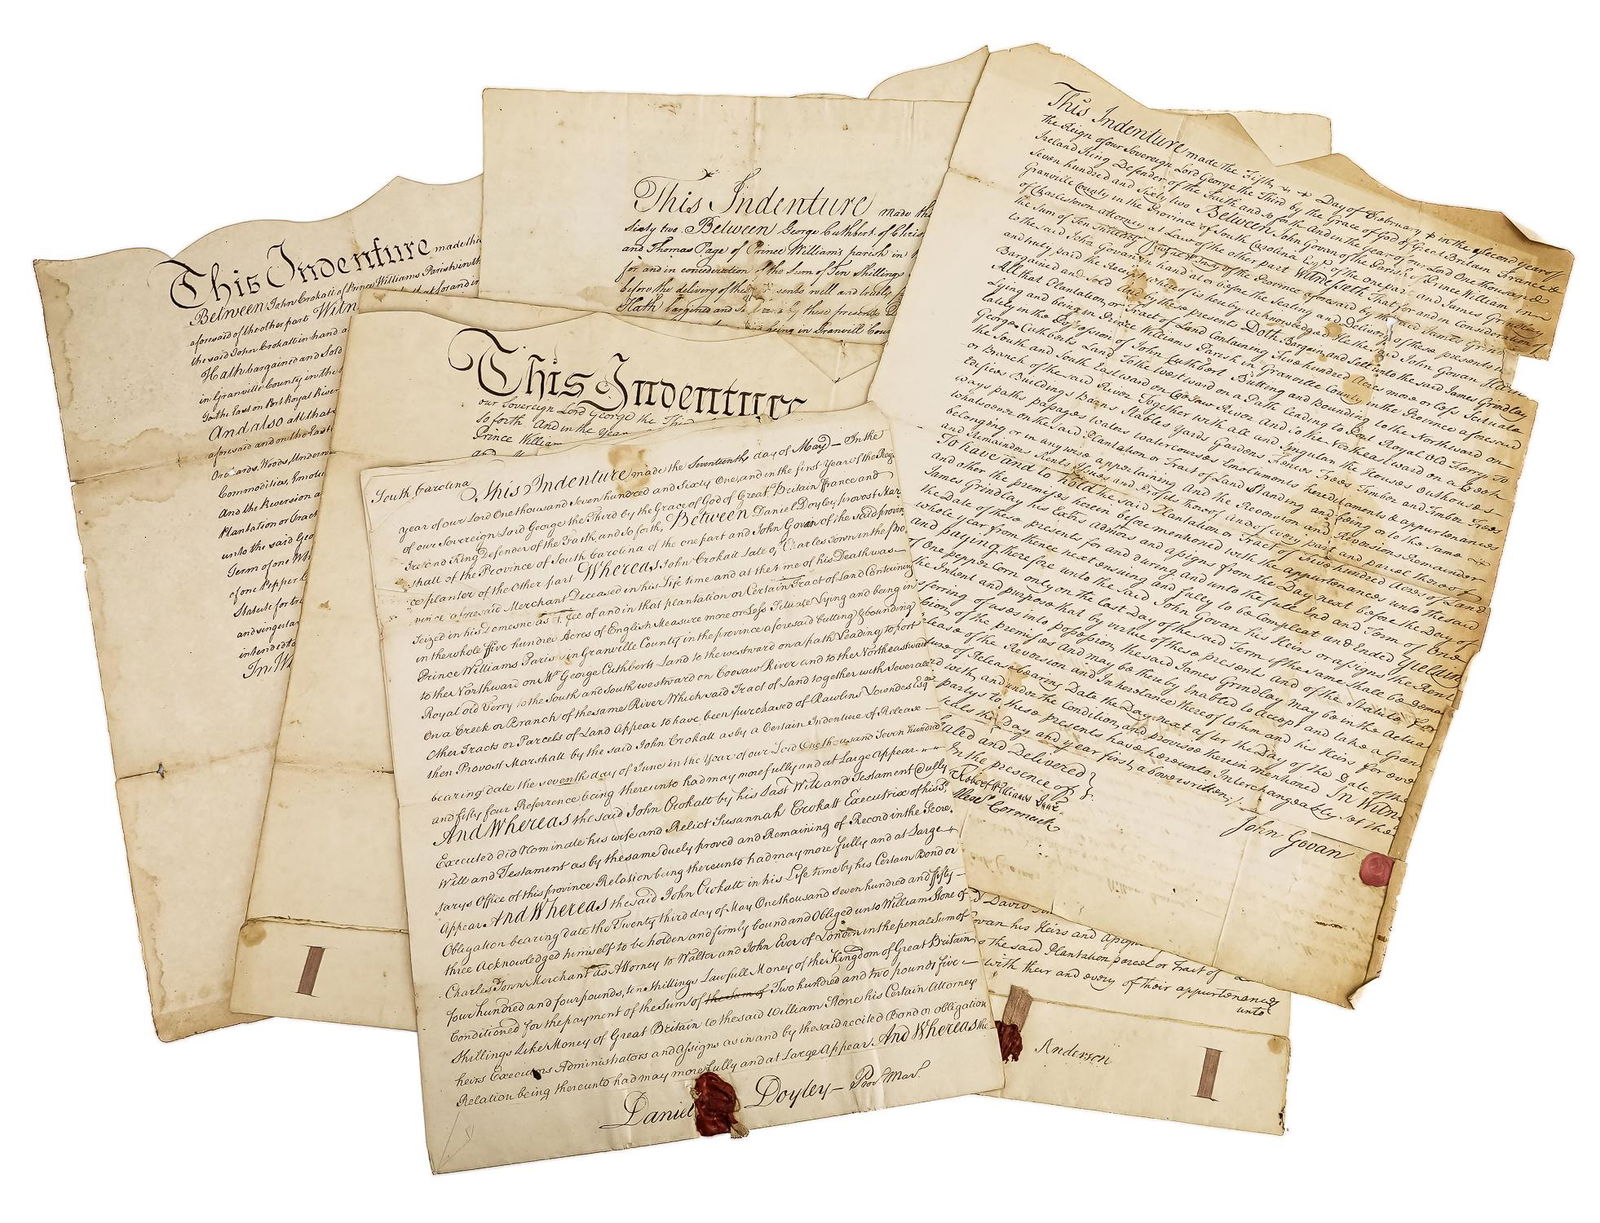 This Indenture made this
Between John Crokatt of Prince Williams Parish in the
aforesaid of the other part Witn
the said John Crokatt in hand a
Hath bargained and Sold
in Granville County in the
To the East on Port Royal River
And also all that
aforesaid and on the East
Orchards, Woods, Underw
Commodities, Emolu
And the Reversion a
Plantation or Tract
unto the said Geo
Term of one Wh
of one Pepper
Statute for tra
and singular
intended to
In Wi
This Indenture made the
Sixty two Between George Cuthbert of Chris
and Thomas Page of Prince William's parish in
for and in consideration of the Sum of Ten Shillings
before the delivery of these presents well and truly
Hath bargined and by these presents
being in Granvill Coun
This Indenture
our Sovereign Lord George the Third
So forth And in the Year
Prince William
South Carolina This Indenture made the Seventeenth day of May – In the
year of our Lord One thousand Seven hundred and Sixty One, and in the first Year of the Reign
of our Sovereign Lord George the Third by the Grace of God of Great Britain France and
Ireland King Defender of the Faith, and so forth Between Daniel Doyley provost Mar
shall of the Province of South Carolina of the one part and John Govan of the said provin
ce planter of the Other part Whereas John Crokatt late of Charles Town in the pro
vince aforesaid Merchant Deceased in his Life time and at the time of his Death was
Seized in his Demesne as of Fee of and in that plantation or Certain Tract of Land Containing
in the whole five hundred Acres of English Measure more or Less Situate Lying and being in
Prince Williams Parish in Granville County in the province aforesaid butting & bounding
to the Northward on Mr George Cuthberts Land to the westward on a path Leading to port
Royal old Ferry to the South and South westward on Coosaw River and to the Northeastward
On a Creek or Branch of the same River Which said Tract of Land together with Several
Other Tracts or Parcels of Land Appear to have been purchased of Rawlins Lowndes Esqr
then Provost Marshall by the said John Crokatt as by a Certain Indenture of Release
bearing date the seventh day of June in the Year of our Lord One thousand Seven hundred
and fifty four Reference being thereunto had may more fully and at Large Appear
And Whereas the said John Crokatt by his Last Will and Testament Dully
Executed did Nominate his wife and Relict Susannah Crokatt Executrix of his Sd
Will and Testament as by the same duely proved and Remaining of Record in the Secre
tarys Office of this province Relation being thereunto had may more fully and at Large
Appear And Whereas the said John Crokatt in his Life time by his Certain Bond or
Obligation bearing date the Twenty third day of May One thousand seven hundred and fifty
three Acknowledged himself to be holden and firmly bound and Obliged unto William Stone of
Charles Town Merchant as Attorney to Walter and John Ewer of London in the penal Sum of
four hundred and four pounds, ten Shillings Lawfull Money of the Kingdom of Great Britain
Conditioned for the payment of the Sum of the sum of Two hundred and two pounds five
Shillings Like Money of Great Britain to the said William Stone his Certain Attorney
heirs Executors Administrators and Assigns as in and by the said recited Bond or obligation
Relation being thereunto had may more fully and at Large Appear. And Whereas the
Daniel Doyley – Provt Marl
This Indenture made the Fifth Day of February in the second Year of
the Reign of our Sovereign Lord George the Third by the Grace of God of Great Britain France &
Ireland King Defender of the Faith and so forth And in the Year of our Lord One thousand
Seven hundred and Sixty two Between John Govan of the Parish of Prince William in
Granville County in the Province of South Carolina Esqr of the one part and James Grindlay
of Charlestown Attorney at Law of the other part Witnesseth That for and in Consideration of
the Sum of Ten Shillings Currt Money of the Province aforesaid by the said James Grindlay
to the said John Govan in hand at or before the Sealing and Delivery of these presents well
and truly paid the Receipt whereof is hereby Acknowledged He the said John Govan Hath
Bargained and Sold and by these presents Doth Bargain and Sell unto the said James Grindlay
All that Plantation or Tract of Land Containing Five hundred Acres more or less Scituate
Lying and being in Prince Williams Parish in Granville County in the Province aforesaid
lately in the Possession of John Cuthbert Butting and Bounding to the Northward on
George Cuthberts Land To the Westward on a Path leading to Port Royal Old Ferry To
the South and South Eastward on Coosaw River and to the Northeastward on a Creek
or Branch of the said River Together with all and Singular the Houses Outhouses
Edifices Buildings Barns Stables Yards Gardens Fences Trees Timber and Timber Trees
ways paths passages waters watercourses Emoluments hereditaments & appurtenances
whatsoever on the said Plantation or Tract of Land Standing and being or to the same
belonging or in any wise appertaining And the Reversion and Reversions Remainder
and Remainders Rents Issues and Profits thereof and of every part and parcel thereof
To have and to hold the said Plantation or Tract of Five hundred Acres of Land
and other the premises herein before mentioned with the appurtenances unto the said
James Grindlay his Exors admors and assigns from the Day next before the Day of
the Date of these presents for and during and unto the full End and Term of One
whole year from thence next ensuing and fully to be Compleat and Ended Yielding
and paying therefore unto the said John Govan his Heirs or assigns the Rent
of One peppercorn only on the last Day of the said Term if the same shall be deman
the Intent and purpose that by virtue of these presents and of the Statute for
sferring of uses into possession the said James Grindlay may be in the Actual
sion of the premises and may be hereby Enabled to accept and take a Grant
elease of the Reversion and Inheritance thereof to him and his Heirs for ever
ure of Release bearing Date the Day next after the Day of the Date of these
d with, and under the Condition and proviso therein mentioned In Witness
party's to these presents have hereunto Interchangeably set their
Seals the Day and year first above written
aled and Delivered
In the presence of
Robert Williams Junr
Alexr Cormack
John Govan
Davis
van his Heirs and Assigns
the said Plantation parcel or Tract of
with their and every of their appurtenances
unto
Anderson